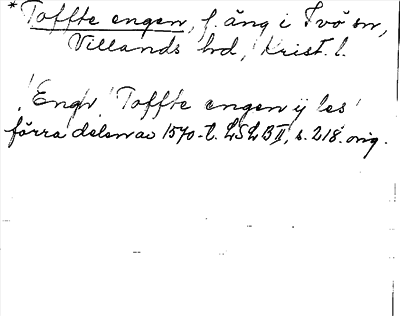 *Toffte engen, f. äng i Ivö sn,
Villands hd, Krist. l.
'Engh' 'Toffte engen ij les'
förra delen av 1570-t. LSLB II, s. 218. orig.